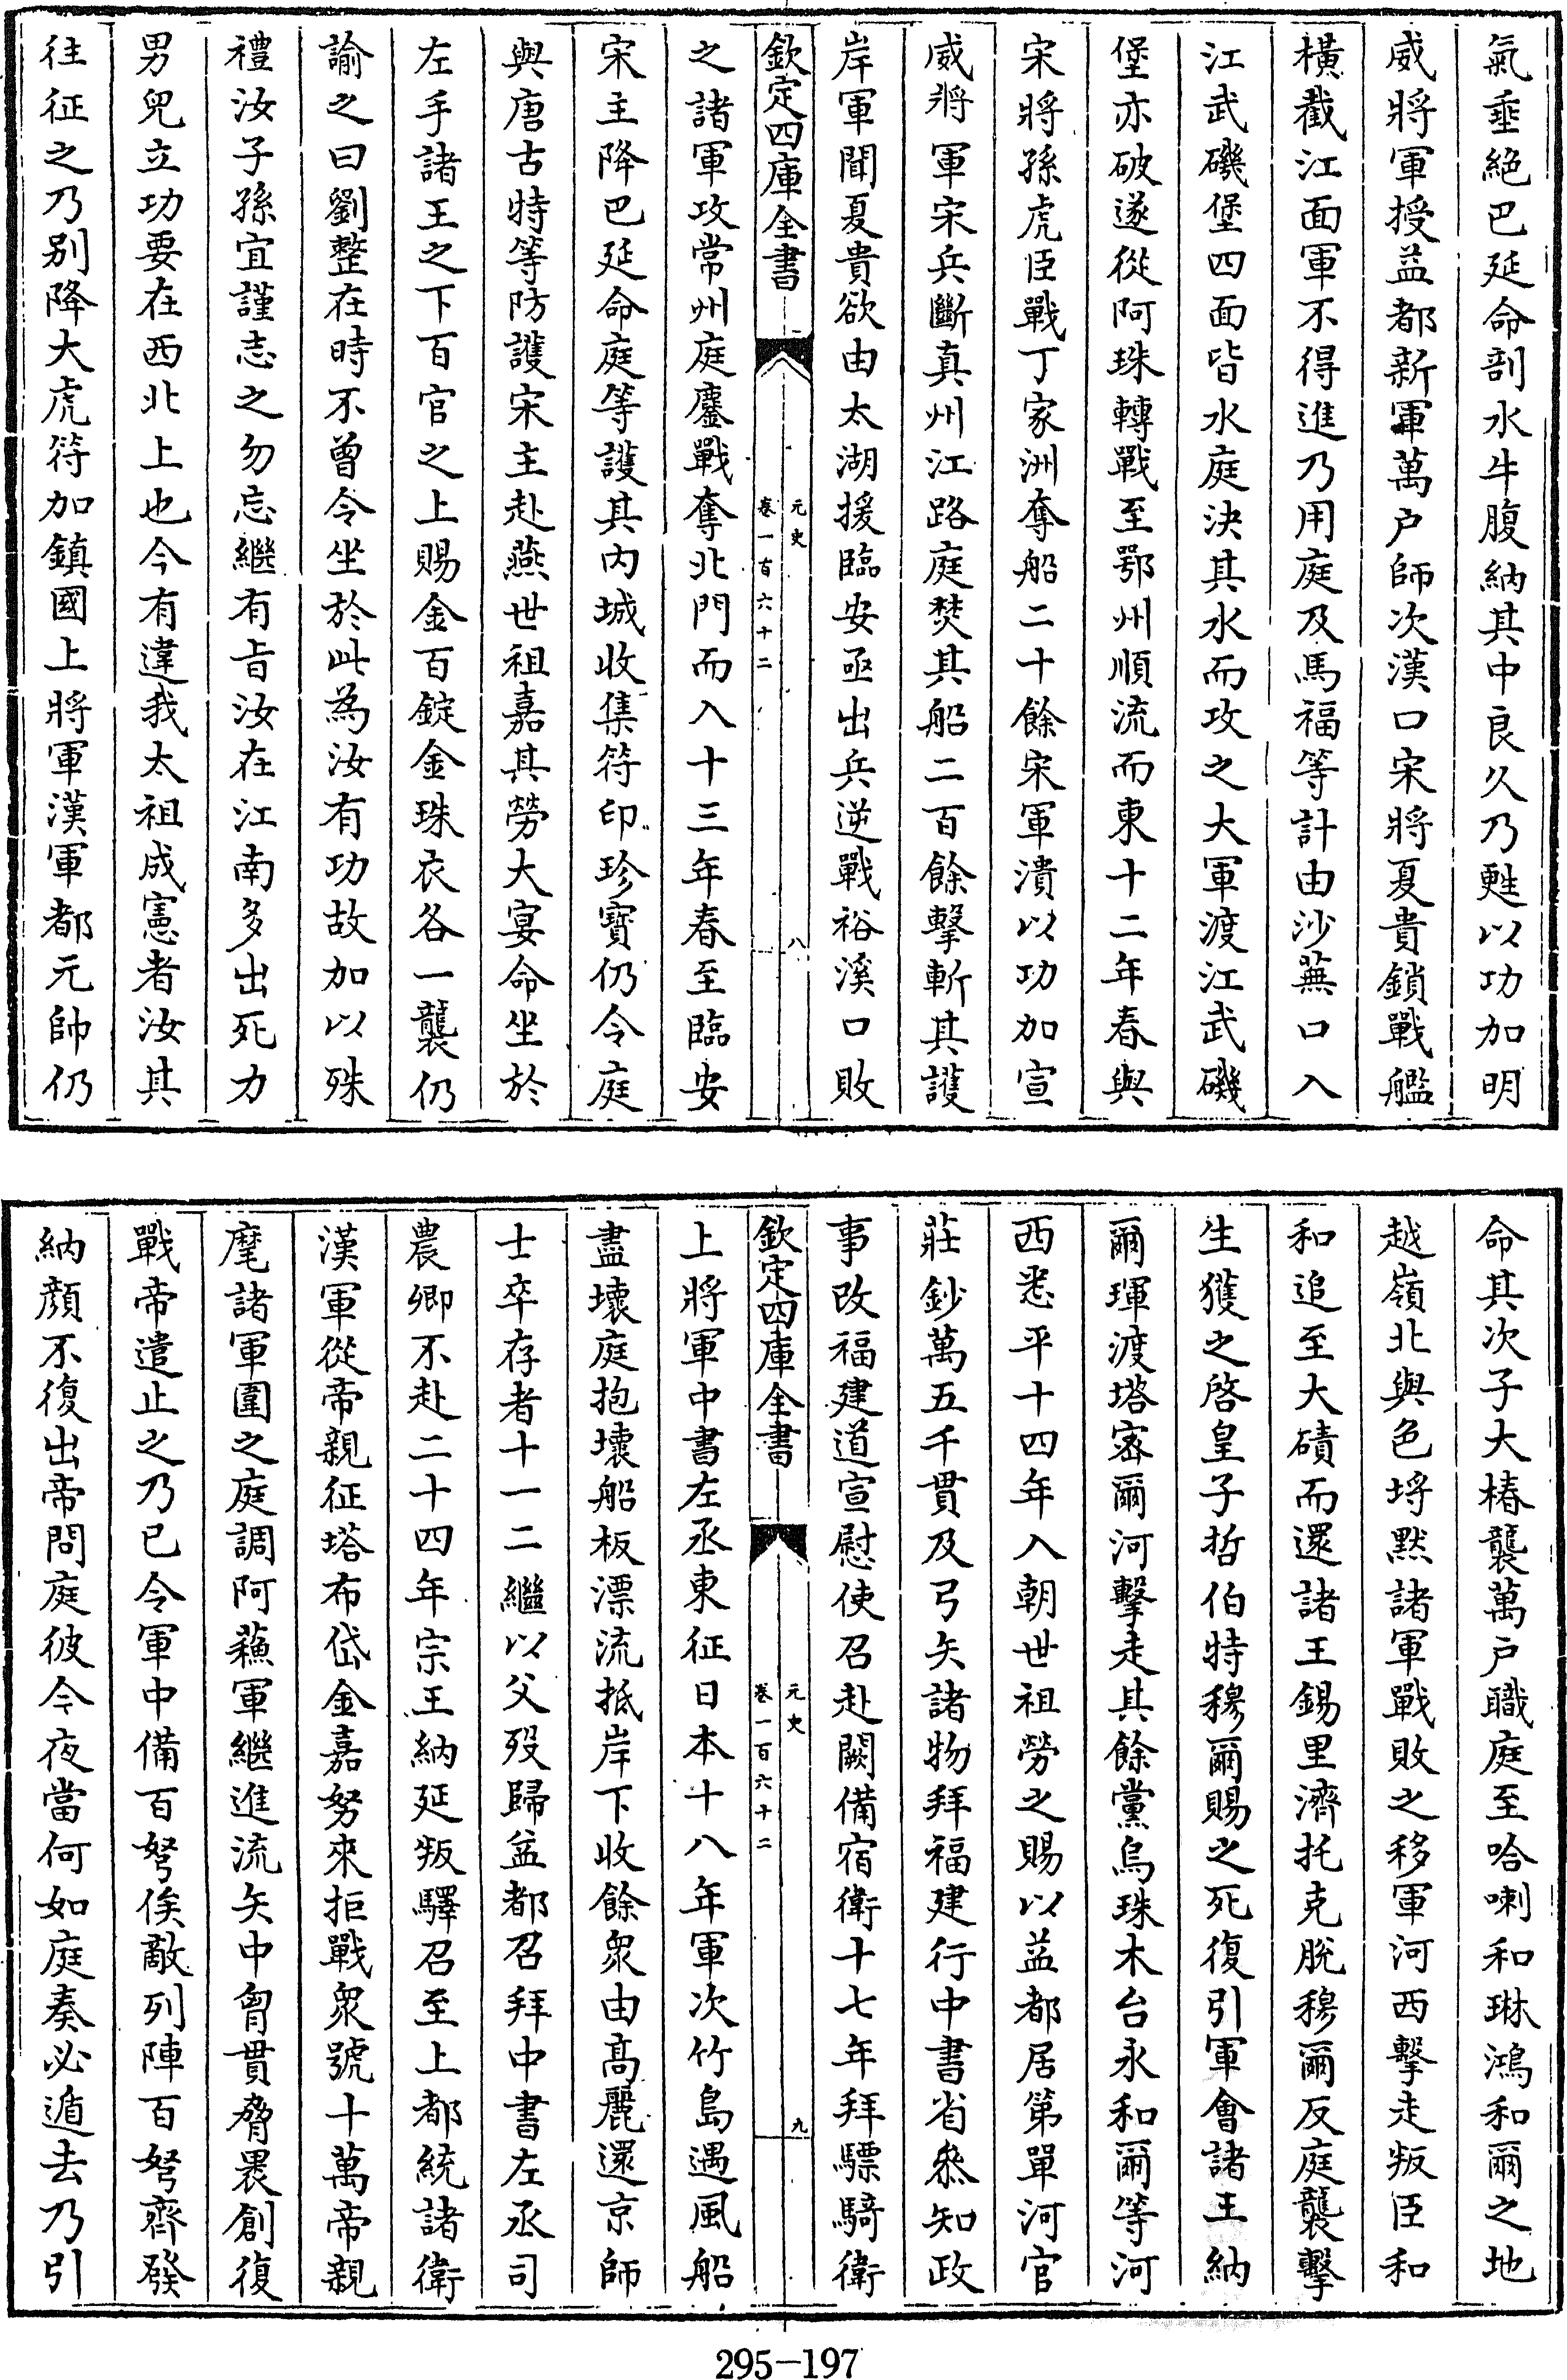 氣垂絕巴延命剖水牛腹納其中良久乃甦以功加明
威將軍授益都新軍萬户師次漢口宋將夏貴鎖戰艦
橫截江面軍不得進乃用庭及馬福等計由沙蕪口入
江武磯堡四面皆水庭決其水而攻之大軍渡江武磯
堡亦破遂從阿珠轉戰至鄂州順流而東十二年春與
宋將孫虎臣戰丁家洲奪船二十餘宋軍潰以功加宣
威將軍宋兵斷真州江路庭焚其船二百餘擊斬其護
岸軍聞夏貴欲由太湖援臨安亟出兵逆戰裕溪口敗
欽定四庫全書
元史
卷一百六十二
八
之諸軍攻常州庭鏖戰奪北門而入十三年春至臨安
宋主降巴延命庭等護其內城收集符印珍寶仍令庭
與唐古特等防護宋主赴燕世祖嘉其勞大宴命坐於
左手諸王之下百官之上賜金百錠金珠衣各一襲仍
諭之曰劉整在時不曾令坐於此為汝有功故加以殊
禮汝子孫宜謹志之勿忘繼有旨汝在江南多出死力
男兒立功要在西北上也今有違我太祖成憲者汝其
往征之乃别降大虎符加鎮國上將軍漢軍都元帥仍
命其次子大椿襲萬户職庭至哈喇和琳鴻和爾之地
越嶺北與色埒默諸軍戰敗之移軍河西擊走叛臣和
和追至大磧而還諸王錫里濟托克脫穆爾反庭襲擊
生獲之啓皇子哲伯特穆爾賜之死復引軍會諸王納
爾琿渡塔宻爾河擊走其餘黨烏珠木台永和爾等河
西悉平十四年入朝世祖勞之賜以益都居第單河官
莊鈔萬五千貫及弓矢諸物拜福建行中書省叅知政
事改福建道宣慰使召赴闕備宿衛十七年拜驃騎衛
欽定四庫全書
元史
卷一百六十二
九
上將軍中書左丞東征日本十八年軍次竹島遇風船
盡壞庭抱壞船板漂流抵岸下收餘眾由高麗還京師
士卒存者十一二繼以父歿歸益都召拜中書左丞司
農卿不赴二十四年宗王納延叛驛召至上都統諸衛
漢軍從帝親征塔布岱金嘉努來拒戰眾號十萬帝親
麾諸軍圍之庭調阿蘓軍繼進流矢中胷貫脅裹創復
戰帝遣止之乃已令軍中備百弩俟敵列陣百弩齊發
納顏不復出帝問庭彼今夜當何如庭奏必遁去乃引
295-197